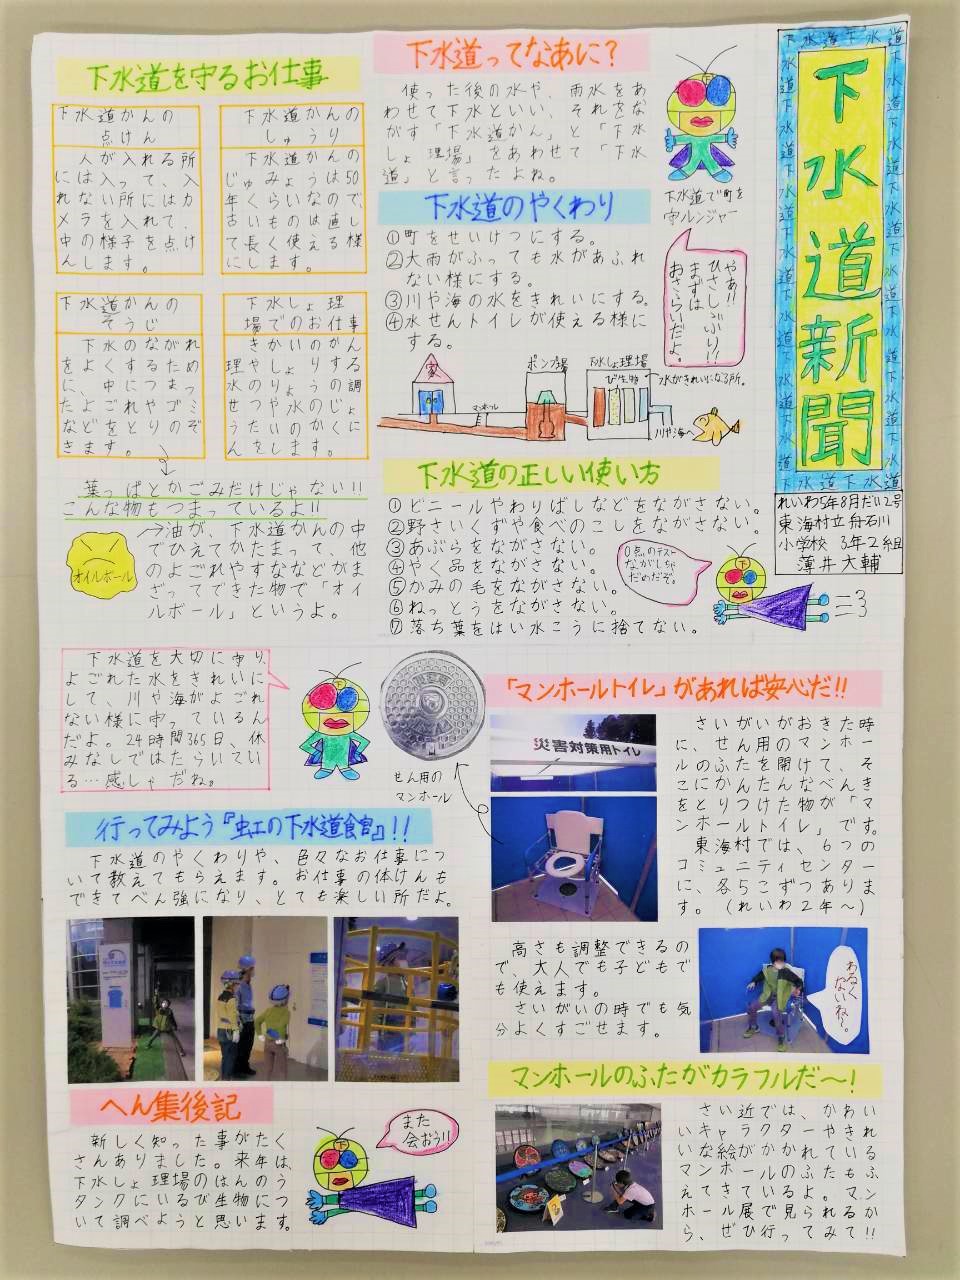 下水道新聞
れいわ5年8月だい2号
東海村立舟石川
小学校 3年2組
薄井大輔
下水道ってなあに?
使った後の水や、雨水をあ
わせて下水といい、それをなが
す「下水道かん」と「下水
しょ理場」をあわせて「下水
道」と言ったよね。
下水道で町を
守ルンジャー
やぁ!!
ひさしぶり!!
まずは
おさらいだよ。
下水道のやくわり
①町をせいけつにする。
②大雨がふっても水があふれ
ない様にする。
③川や海の水をきれいにする。
④水せんトイレが使える様に
する。
家
マンホール
ポンプ場
下水しょ理場
び生物
水がきれいになる所。
川や海へ
下水道の正しい使い方
①ビニールやわりばしなどをながさない。
②野さいくずや食べのこしをながさない。
③あぶらをながさない。
④やく品をながさない。
⑤かみの毛をながさない。
⑥ねっとうをながさない。
⑦落ち葉をはい水こうに捨てない。
0点のテスト
ながしちゃ
だめだぞ。
下水道を守るお仕事
下水道かんの
点けん
人が入れる所
には入って、入
れない所にはカ
メラを入れて、
中の様子を点け
んします。
下水道かんの
しゅうり
下水道かんの
じゅみょうは50
年くらいなので、
古いものは直し
て長く使える様
にします。
下水道かんの
そうじ
下水のながれ
をよくするため
に、中につまっ
たよごれやゴミ
などをとりのぞ
きます。
下水しょ理
場でのお仕事
きかいのかん
理やしょりする
水のりょうの調
せつや水のじょ
うたいのかくに
んをします。
葉っぱとかごみだけじゃない!!
こんな物もつまっているよ!!
オイルボール
→油が、下水道かんの中
でひえてかたまって、他
のよごれやすななどがま
ざってできた物で「オイ
ルボール」というよ。
下水道を大切に守り、
よごれた水をきれいに
して、川や海がよごれ
ない様に守っているん
だよ。24時間365日、休
みなしではたらいてい
る…感しゃだね。
せん用の
マンホール
「マンホールトイレ」があれば安心だ!!
災害対策用トイレ
さいがいがおきた時
に、せん用のマンホー
ルのふたを開けて、そ
こにかんたんなべんき
をとりつけた物が「マ
ンホールトイレ」です。
東海村では、6つの
コミュニティセンター
に、各5こずつありま
す。(れいわ2年〜)
高さも調整できるの
で、大人でも子どもで
も使えます。
さいがいの時でも気
分よくすごせます。
あるく
ないね〜。
行ってみよう『虹の下水道館』!!
下水道のやくわりや、色々なお仕事につ
いて教えてもらえます。お仕事の体けんも
できてべん強になり、とても楽しい所だよ。
へん集後記
新しく知った事がたく
さんありました。来年は、
下水しょ理場のはんのう
タンクにいるび生物につ
いて調べようと思います。
また
会おう!!
マンホールのふたがカラフルだ〜!
さい近では、かわい
いキャラクターやきれ
いな絵がかかれている
マンホールのふたもふ
えてきているよ。マン
ホール展で見られるか
ら、ぜひ行ってみて!!